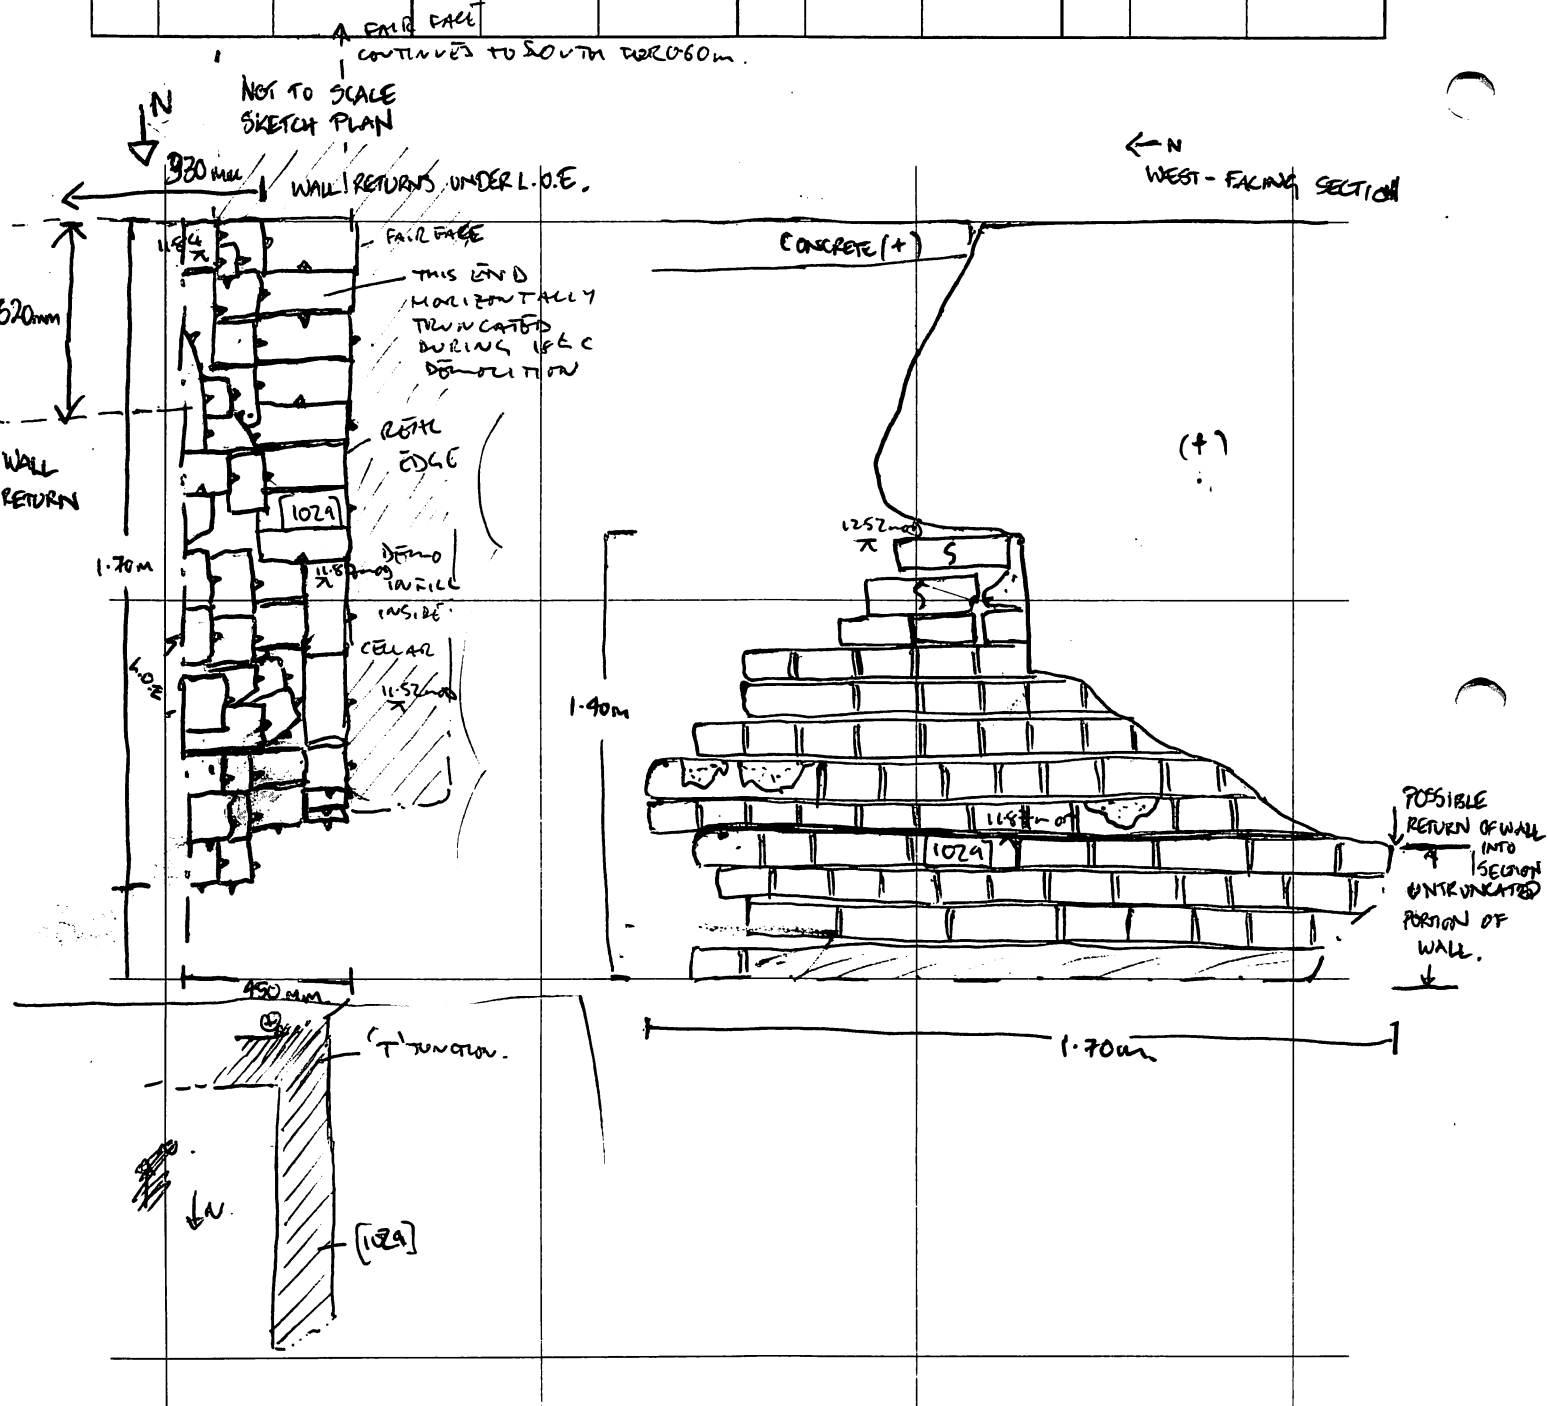 FAIR FACE
CONTINUES TO SOUTH FOR 0.60m.
NOT TO SCALE
SKETCH PLAN
N
930mm
WALL RETURNS UNDER L.O.E.
FAIR FACE
THIS END
HORIZONTALLY
TRUNCATED
DURING
DEMOLITION
520mm
WALL
RETURN
REAR
EDGE
[1029]
1.70m
DEMO
INFILL
INSIDE
CELLAR
11.52mod
L.O.E
450mm
'T' JUNCTION.
N
[1029]
← N
WEST-FACING SECTION
CONCRETE (+)
(+)
12.52mod
S
S
1.40m
[1029]
1.70m
POSSIBLE
RETURN OF WALL
INTO
SECTION
UNTRUNCATED
PORTION OF
WALL.